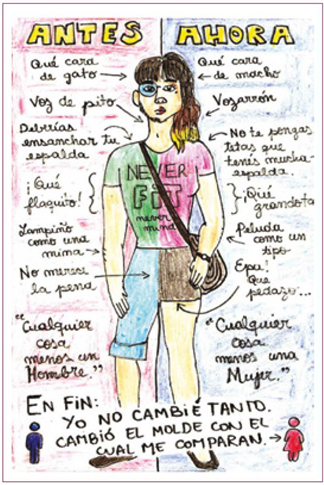 ANTES
Qué cara
de gato
Voz de pito
Deberías
ensanchar tu
espalda
¡Qué
flaquito!
Lampiño
como una
mina
No merece
la pena
"Cualquier
cosa
menos un
Hombre."
AHORA
Qué cara
de macho
Vozarrón
No te pongas
tetas que
tenés mucha
espalda
¡Qué
grandota
Peluda
como un
tipo
Epa!
Qué
pedazo...
"Cualquier
cosa
menos una
Mujer."
NEVER
FIT
never
mind
EN FIN:
YO NO CAMBIÉ TANTO.
CAMBIÓ EL MOLDE CON EL
CUAL ME COMPARAN.